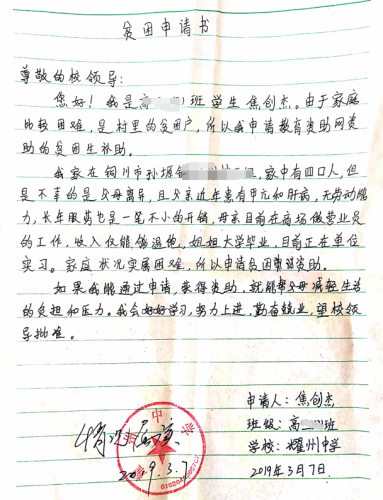 贫困申请书
尊敬的校领导:
您好!我是高班学生焦创杰。由于家庭
比较困难,是村里的贫困户,所以我申请教育资助网资
助的贫困生补助。
我家在铜川市孙塬,家中有四口人,但
是不幸的是父母离异,且父亲近年患有甲亢和肝病,无劳动能
力,长年服药也是一笔不小的开销,母亲目前在商场做营业员
的工作,收入仅能够温饱,姐姐大学毕业,目前正在单位
实习。家庭状况实属困难,所以申请贫困资助。
如果我能通过申请,获得资助,就能帮父母减轻生活
的负担和压力。我会好好学习,努力上进,勤奋兢业,望校领
导批准。
申请人:焦创杰
班级:高班
学校:耀州中学
2019年3月7日
情况属实
2019.3.7
中学